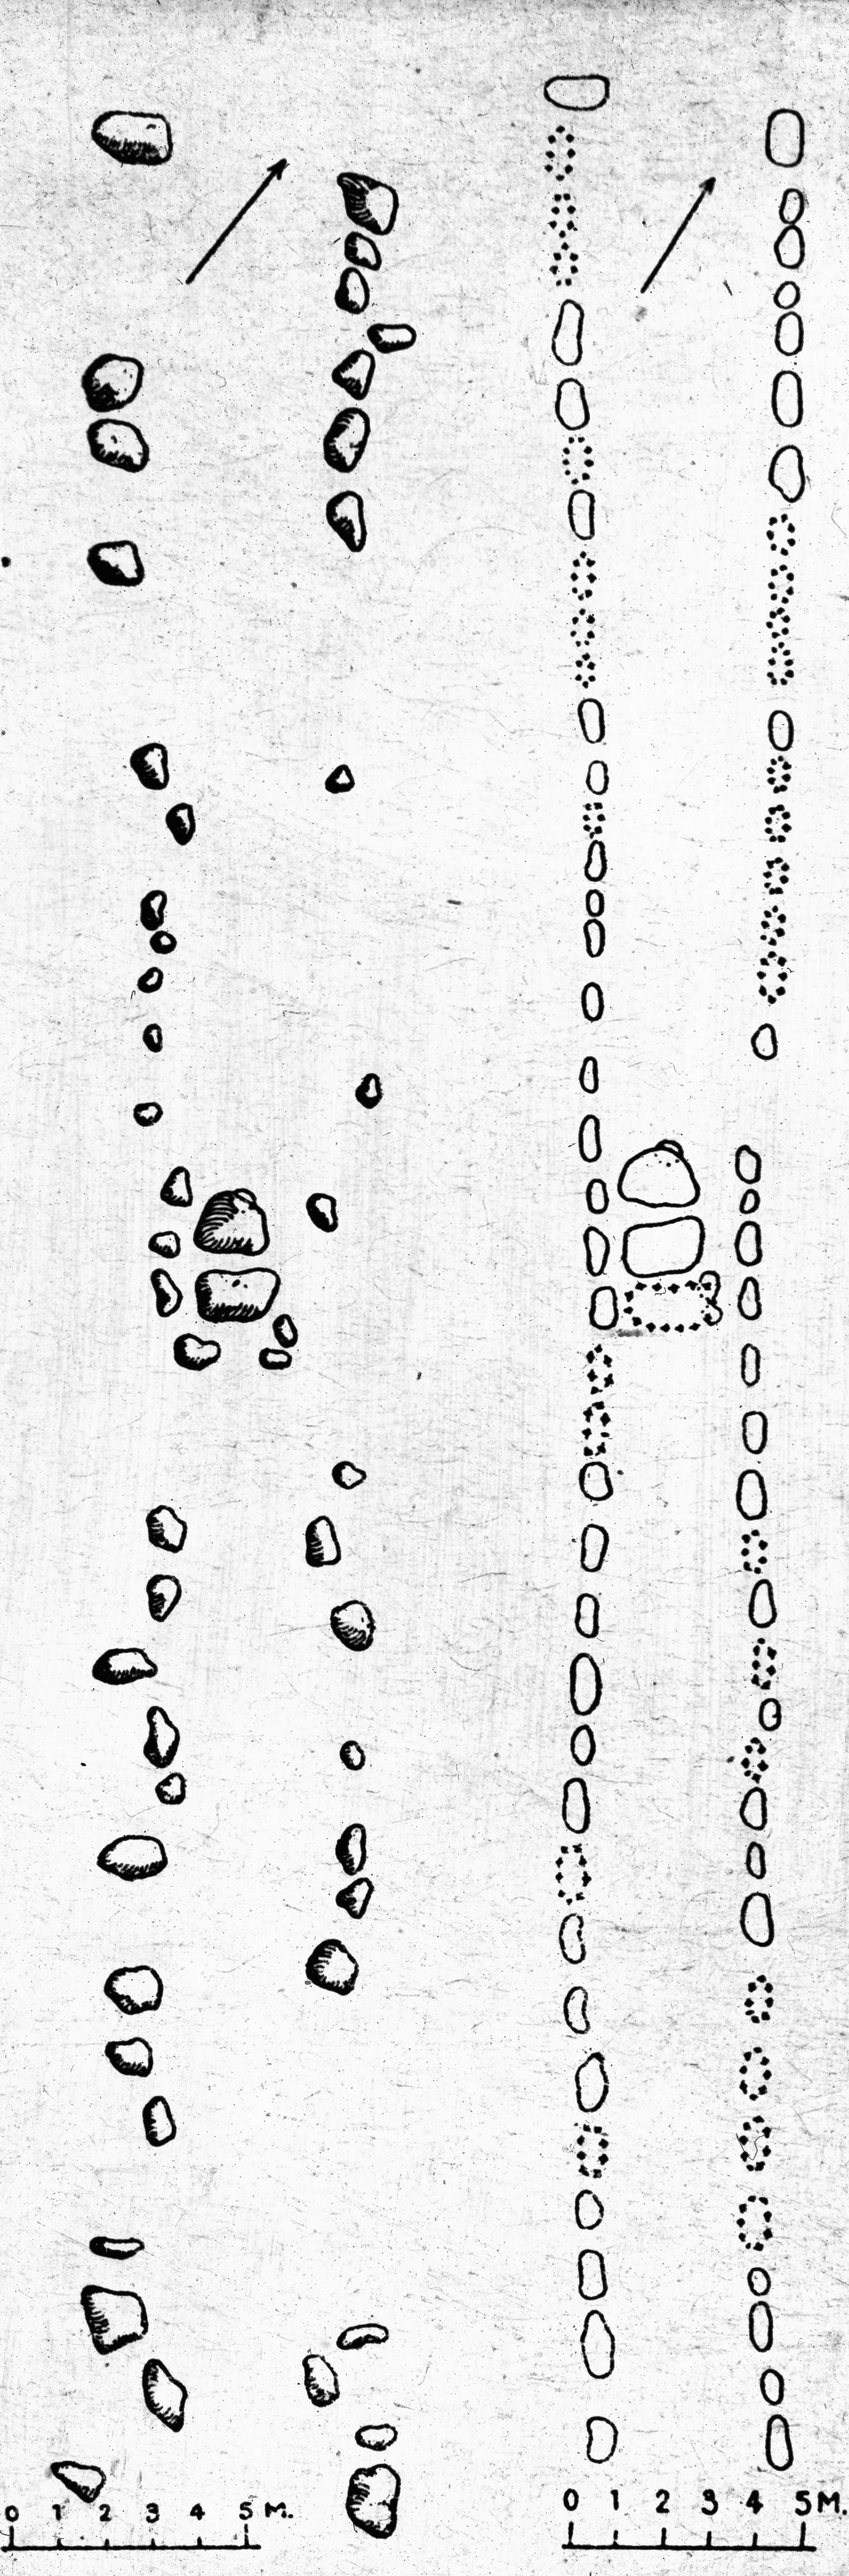 0 1 2 3 4 5 M.
0 1 2 3 4 5 M.